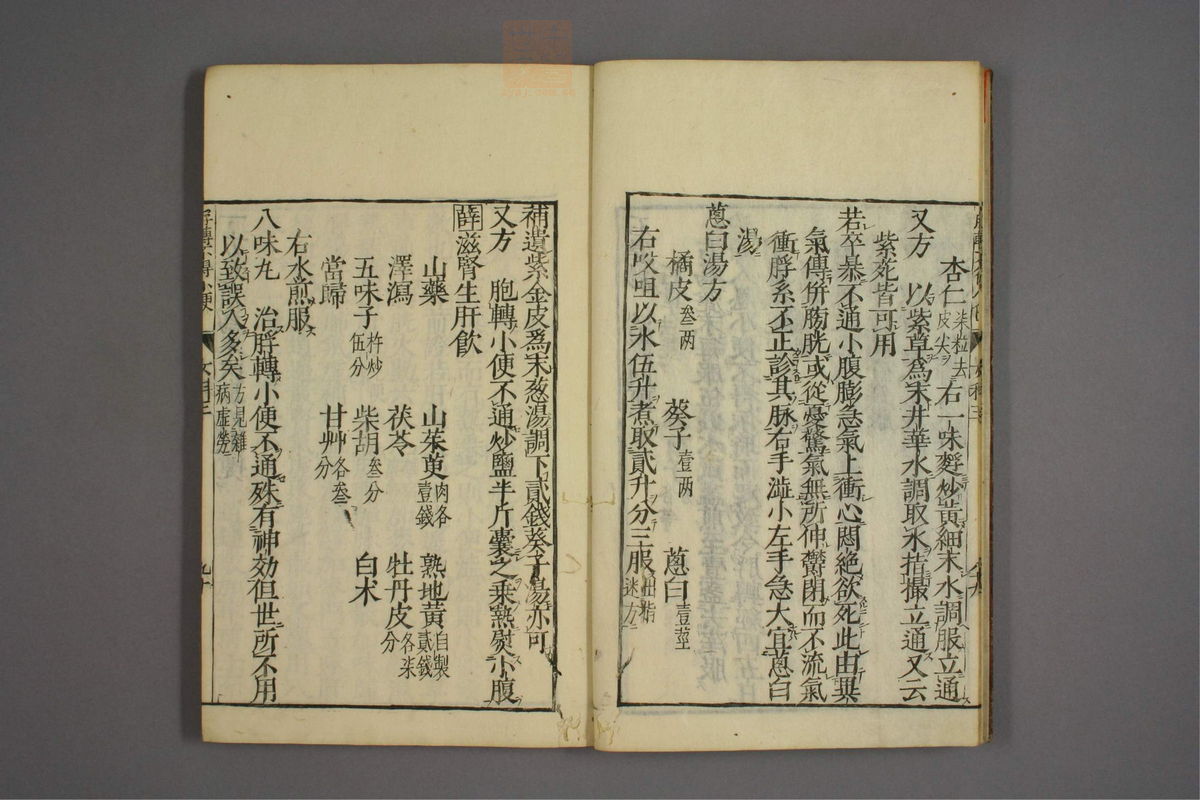 杏仁柒粒去皮尖右一味麩炒黃細末水調服立通
又方　以紫草爲末井華水調取水指撮立通又云
紫菀皆可用
若卒暴不通小腹膨急氣上衝心悶絕欲死此由異
氣傳併膀胱或從憂驚氣無所伸鬱閉而不流氣
衝脬系不正診其脉右手澁小左手急大宜蔥白
湯
蔥白湯方
橘皮叁两　葵子壹两　蔥白壹莖
右㕮咀以水伍升煮取貳升分三服
補遺紫金皮爲末葱湯調下貳錢葵子湯亦可
又方　胞轉小便不通炒鹽半斤囊之乘熱熨小腹
薛滋腎生肝飲
山藥　山茱萸肉各壹錢　熟地黃自製貳錢
澤瀉　茯苓　牡丹皮各柒分
五味子杵炒伍分　柴胡叁分　白术
當歸　甘艸各叁分
右水煎服
八味丸　治脬轉小便不通殊有神効但世所不用
以致誤人多矣方見雜病虛勞